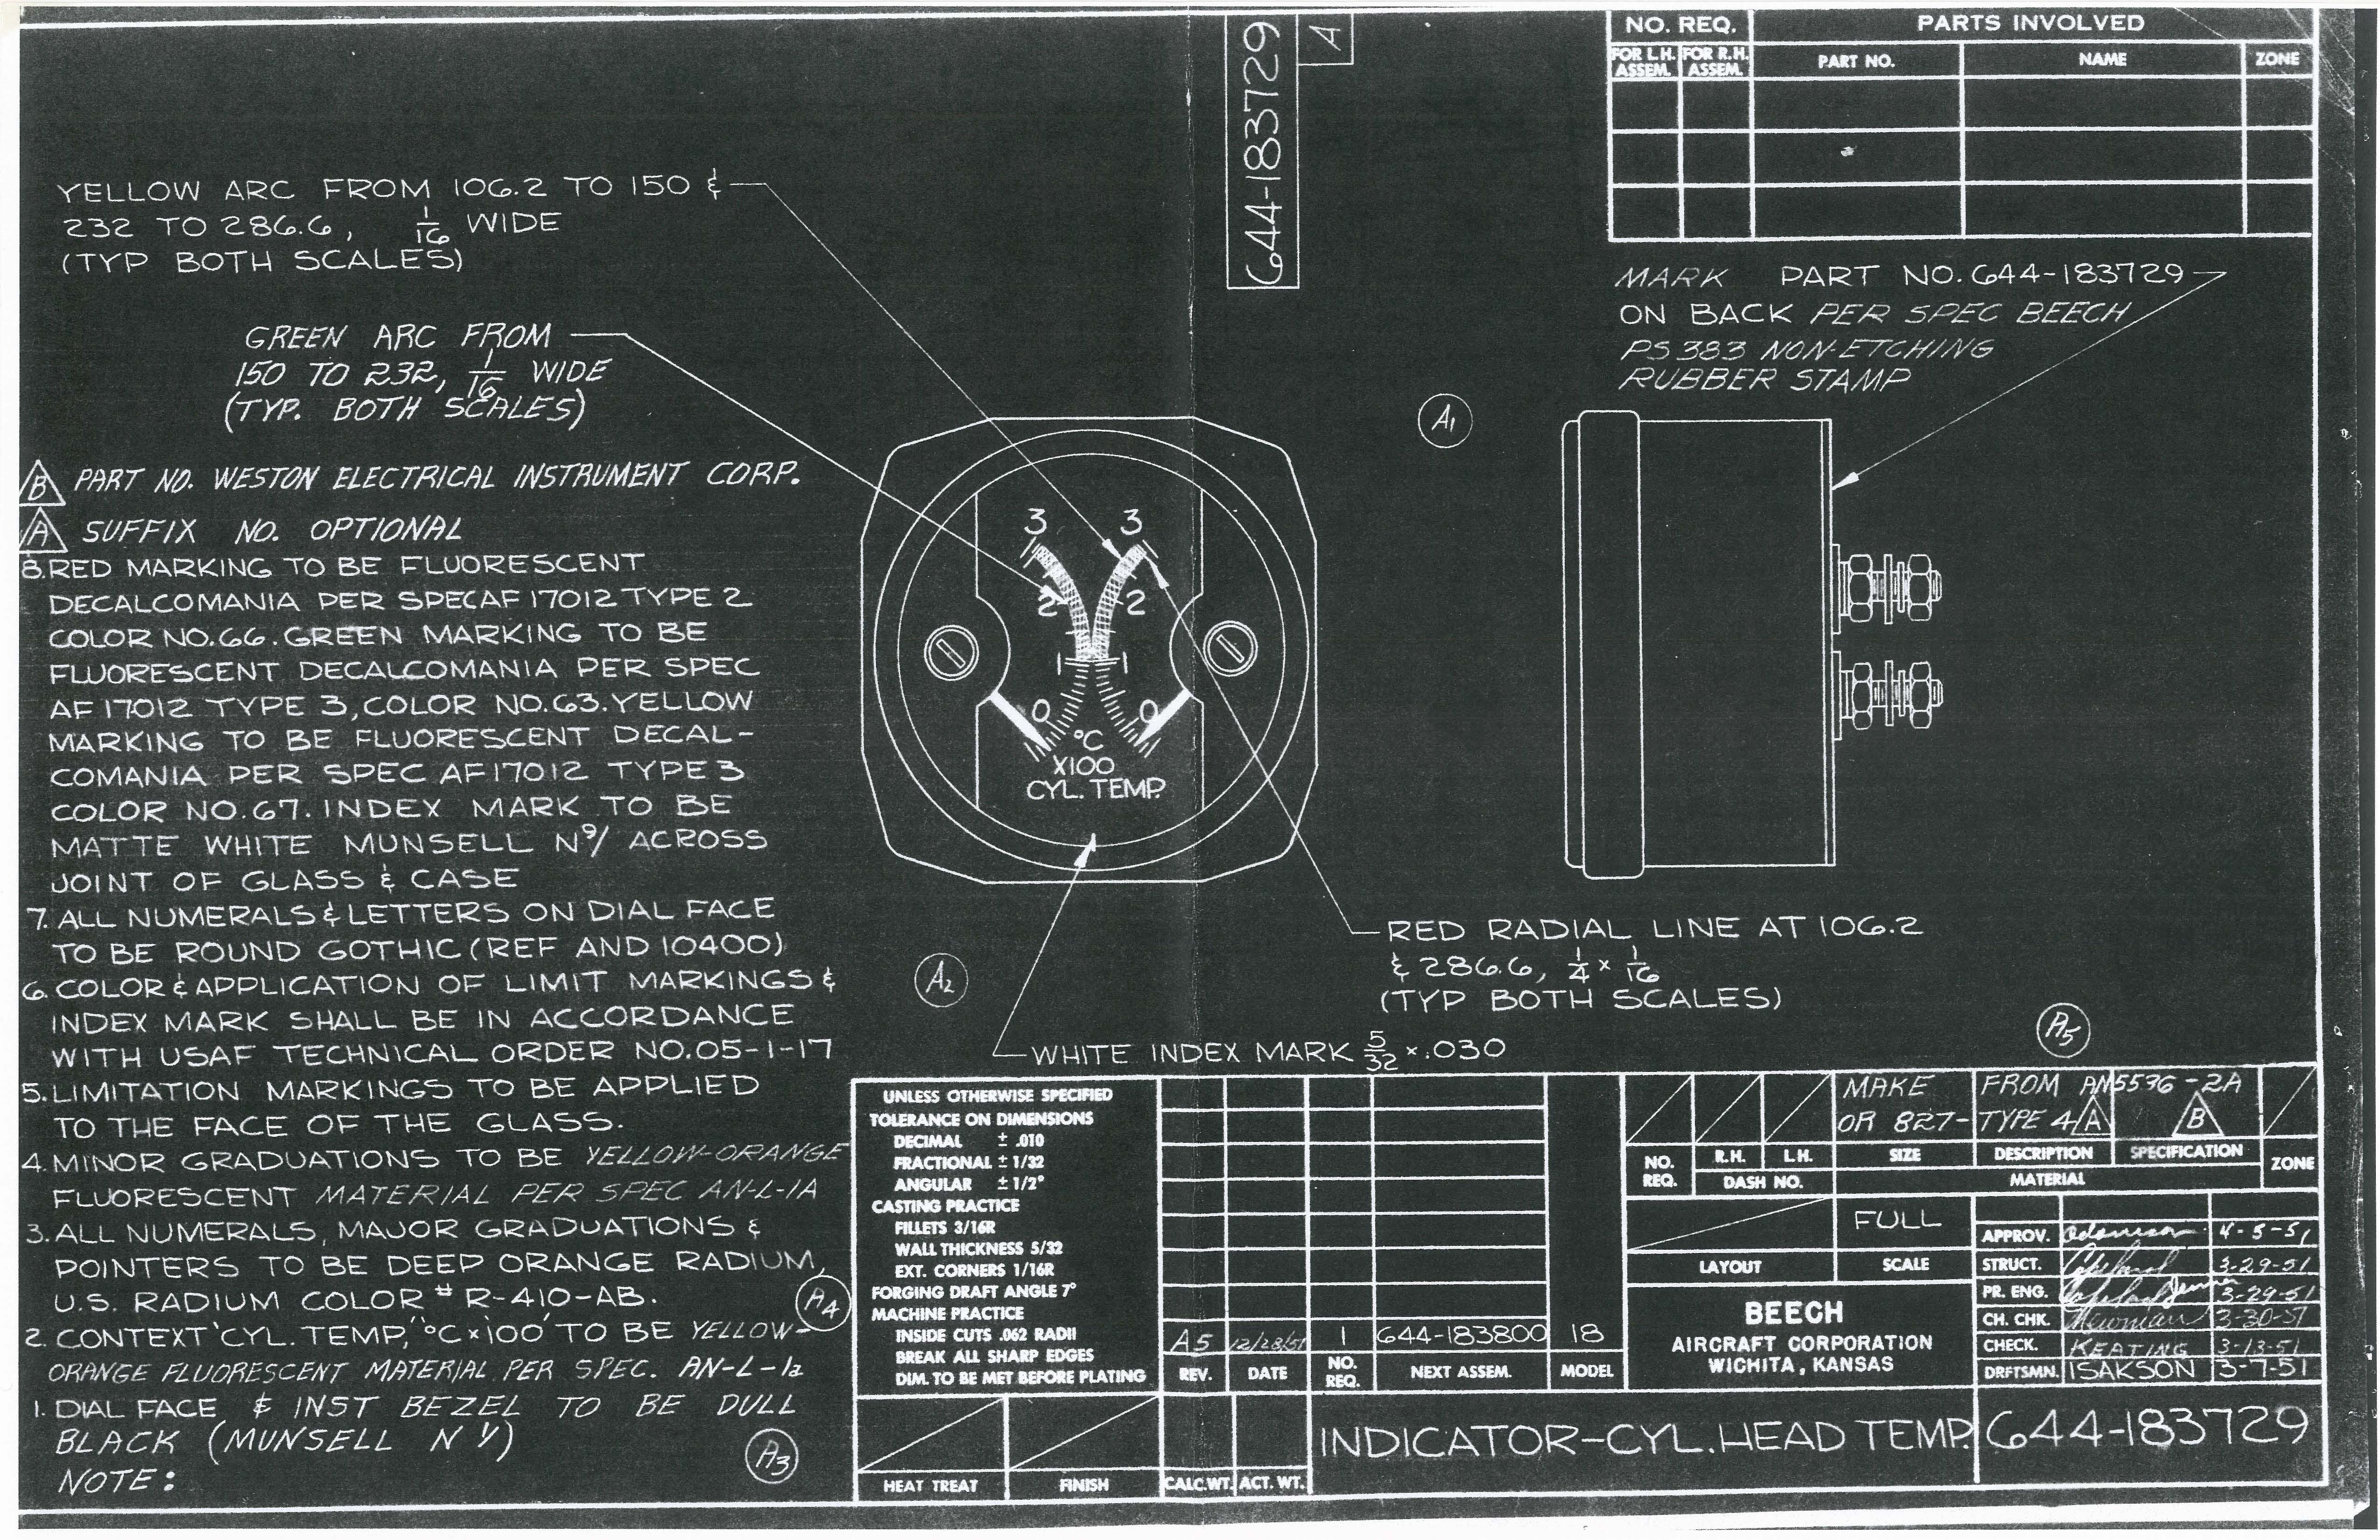 644-183729
A
NO. REQ. PARTS INVOLVED
FOR L.H. ASSEM. FOR R.H. ASSEM. PART NO. NAME ZONE
YELLOW ARC FROM 106.2 TO 150 &
232 TO 286.6, 1/16 WIDE
(TYP BOTH SCALES)
GREEN ARC FROM
150 TO 232, 1/16 WIDE
(TYP. BOTH SCALES)
MARK PART NO. 644-183729
ON BACK PER SPEC BEECH
PS 383 NON-ETCHING
RUBBER STAMP
A1
B PART NO. WESTON ELECTRICAL INSTRUMENT CORP.
A SUFFIX NO. OPTIONAL
8. RED MARKING TO BE FLUORESCENT
DECALCOMANIA PER SPEC AF 17012 TYPE 2
COLOR NO. 66. GREEN MARKING TO BE
FLUORESCENT DECALCOMANIA PER SPEC
AF 17012 TYPE 3, COLOR NO. 63. YELLOW
MARKING TO BE FLUORESCENT DECAL-
COMANIA PER SPEC AF 17012 TYPE 3
COLOR NO. 67. INDEX MARK TO BE
MATTE WHITE MUNSELL N 9/ ACROSS
JOINT OF GLASS & CASE
7. ALL NUMERALS & LETTERS ON DIAL FACE
TO BE ROUND GOTHIC (REF AND 10400)
6. COLOR & APPLICATION OF LIMIT MARKINGS &
INDEX MARK SHALL BE IN ACCORDANCE
WITH USAF TECHNICAL ORDER NO. 05-1-17
5. LIMITATION MARKINGS TO BE APPLIED
TO THE FACE OF THE GLASS.
4. MINOR GRADUATIONS TO BE YELLOW-ORANGE
FLUORESCENT MATERIAL PER SPEC AN-L-1A
3. ALL NUMERALS, MAJOR GRADUATIONS &
POINTERS TO BE DEEP ORANGE RADIUM,
U.S. RADIUM COLOR # R-410-AB.
A4
2. CONTEXT "CYL. TEMP," "°C × 100" TO BE YELLOW-
ORANGE FLUORESCENT MATERIAL PER SPEC. AN-L-1a
1. DIAL FACE & INST BEZEL TO BE DULL
BLACK (MUNSELL N 1/)
NOTE:
A3
3 3
2 2
1 1
0 0
°C
X100
CYL. TEMP.
A2
RED RADIAL LINE AT 106.2
& 286.6, 1/4 × 1/16
(TYP BOTH SCALES)
WHITE INDEX MARK 5/32 × .030
A5
UNLESS OTHERWISE SPECIFIED
TOLERANCE ON DIMENSIONS
DECIMAL ± .010
FRACTIONAL ± 1/32
ANGULAR ± 1/2°
CASTING PRACTICE
FILLETS 3/16R
WALL THICKNESS 5/32
EXT. CORNERS 1/16R
FORGING DRAFT ANGLE 7°
MACHINE PRACTICE
INSIDE CUTS .062 RADII
BREAK ALL SHARP EDGES
DIM. TO BE MET BEFORE PLATING
A5 12/28/51 1 644-183800 18
REV. DATE NO. REQ. NEXT ASSEM. MODEL
MAKE FROM AN5536-2A
OR 827- TYPE 4 A B
NO. REQ. R.H. L.H. DASH NO. SIZE DESCRIPTION SPECIFICATION ZONE
MATERIAL
FULL
LAYOUT SCALE
APPROV. Adamson 4-5-51
STRUCT. Copeland 3-29-51
PR. ENG. Copeland 3-29-51
CH. CHK. Newman 3-30-51
CHECK. KEATING 3-13-51
DRFTSMN. ISAKSON 3-7-51
BEECH
AIRCRAFT CORPORATION
WICHITA, KANSAS
HEAT TREAT FINISH CALC. WT. ACT. WT.
INDICATOR-CYL. HEAD TEMP. 644-183729